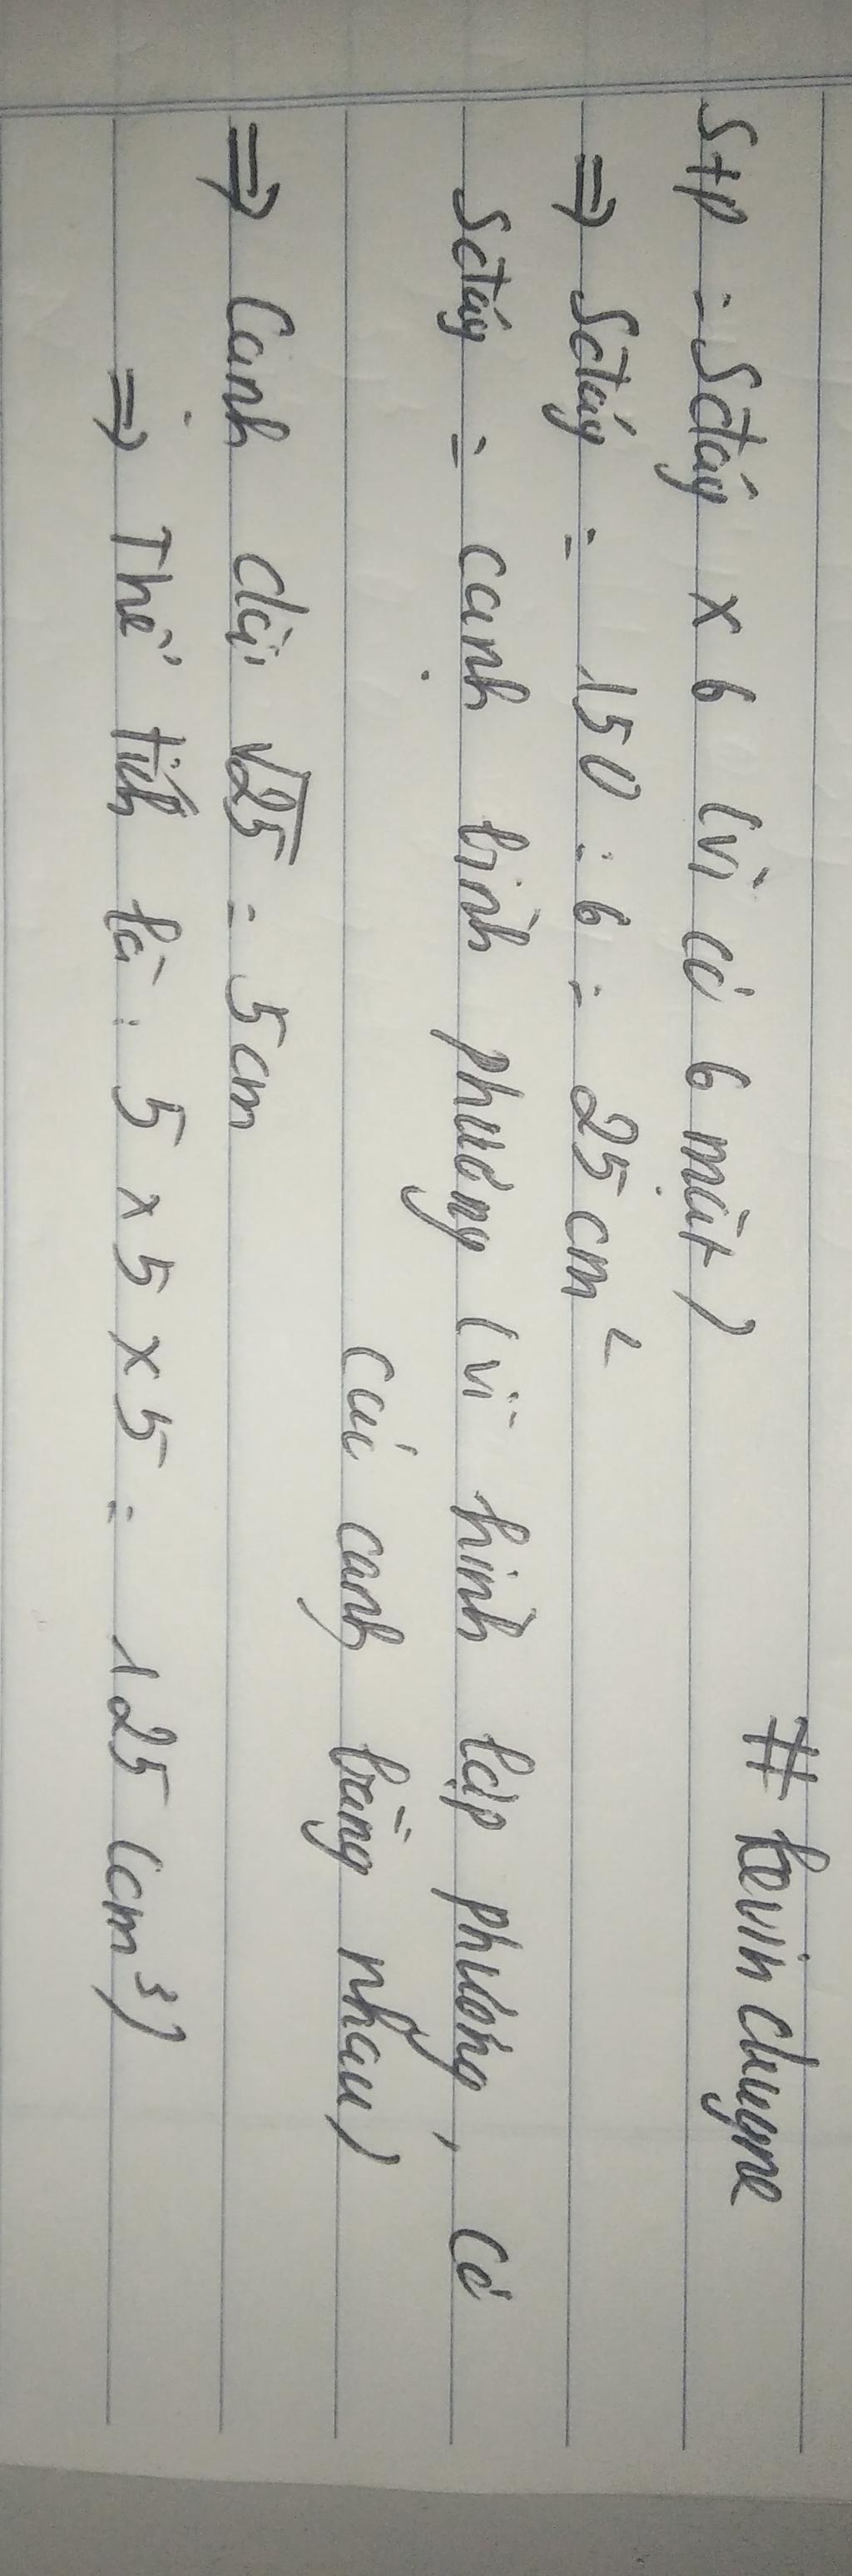 # kevin chuyne
Stp = Sđáy x 6 (vì có 6 mặt)
=> Sđáy = 150 : 6 = 25 cm²
Sđáy = cạnh bình phương (vì hình lập phương, có
các cạnh bằng nhau)
=> Cạnh dài √25 = 5cm
=> Thể tích là : 5 x 5 x 5 = 125 (cm³)